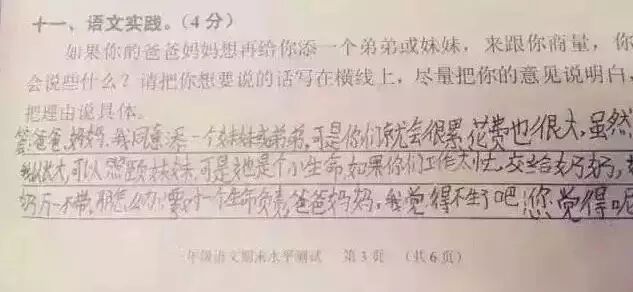 十一、语文实践。(4分)
如果你的爸爸妈妈想再给你添一个弟弟或妹妹，来跟你商量，你
会说些什么？请把你想要说的话写在横线上，尽量把你的意见说明白，
把理由说具体。
答:爸爸、妈妈，我同意添一个妹妹或弟弟，可是你们就会很累，花费也很大，虽然
我长大，可以照顾妹妹，可是她是个小生命，如果你们工作太忙，交给奶奶，
奶万一不带，那怎么办？要对一个生命负责，爸爸妈妈，我觉得不生了吧，您觉得呢
年级语文期末水平测试 第3页 (共6页)